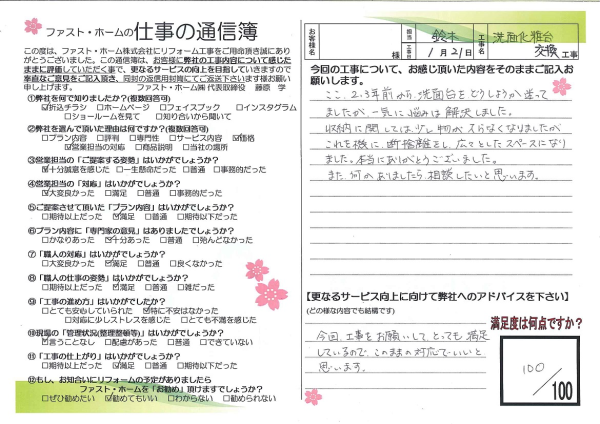 ファスト・ホームの仕事の通信簿
この度は、ファスト・ホーム株式会社にリフォーム工事をご用命頂き誠にありがとうございました。この通信簿は、お客様に弊社の工事内容について感じたままに評価していただく事で、更なるサービスの向上を目指していきますので率直なご意見をご記入頂き、同封の返信用封筒にてご返送下さいます様お願い申し上げます。
ファスト・ホーム㈱ 代表取締役 藤原 学
①弊社を何で知りましたか?(複数回答可)
☑折込チラシ □ホームページ □フェイスブック □インスタグラム
□ショールームを見て □知り合いから聞いて
②弊社を選んで頂いた理由は何ですか?(複数回答可)
□プラン内容 □評判 □専門性 □サービス内容 ☑価格
☑営業担当の対応 □商品説明 □当社の場所
③営業担当の「ご提案する姿勢」はいかがでしょうか?
☑十分誠意を感じた □一生懸命だった □普通 □事務的だった
④営業担当の「対応」はいかがでしょうか?
☑大変良かった □満足 □普通 □事務的だった
⑤ご提案させて頂いた「プラン内容」はいかがでしょうか?
□期待以上だった ☑満足 □普通 □期待以下だった
⑥プラン内容に「専門家の意見」はありましたでしょうか?
□かなりあった ☑十分あった □普通 □殆んどなかった
⑦「職人の対応」はいかがでしょうか?
□大変良かった ☑満足 □普通 □良くなかった
⑧「職人の仕事の姿勢」はいかがでしょうか?
□期待以上だった ☑満足 □普通 □雑だった
⑨「工事の進め方」はいかがでしたか?
□とても安心していられた ☑特に不安はなかった
□対応に少しストレスを感じた □とても不満を感じた
⑩現場の「管理状況(整理整頓等)」はいかがでしょうか?
☑言うことなし □配慮があった □普通 □できていない
⑪「工事の仕上がり」はいかがでしょうか?
□期待以上だった ☑満足 □普通 □期待以下だった
⑫もし、お知合いにリフォームの予定がありましたら
ファスト・ホームを「お勧め」頂けますでしょうか?
□ぜひ勧めたい ☑勧めてもいい □わからない □勧められない
お客様名 様 担当 鈴木 工事日 1月21日 工事名 洗面化粧台交換 工事
今回の工事について、お感じ頂いた内容をそのままご記入お願いします。
ここ、2,3年前から、洗面台をどうしようか迷って
ましたが、一気に悩みは解決しました。
収納に関しては、少し物が入らなくなりましたが
これを機に、断捨離をし、広々としたスペースになり
ました。本当にありがとうございました。
また、何かありましたら相談したいと思います。
【更なるサービス向上に向けて弊社へのアドバイスを下さい】
(どの様な内容でも結構です)
今回、工事をお願いして、とっても満足
しているので、このままの対応でいいと
思います。
満足度は何点ですか?
100/100